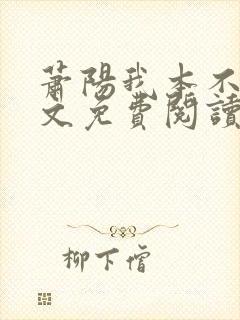 蕭陽我本不
文免費閱讀
柳下僧